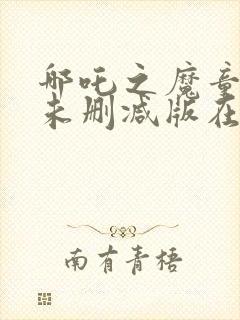 哪吒之魔童
未删减版在
南有青梧